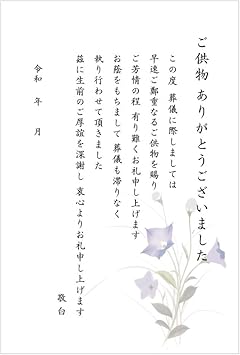 ご供物 ありがとうございました
この度 葬儀に際しましては
早速ご鄭重なるご供物を賜り
ご芳情の程 有り難くお礼申し上げます
お蔭をもちまして 葬儀も滞りなく
執り行わせて頂きました
茲に生前のご厚誼を深謝し 衷心よりお礼申し上げます
敬白
令和 年 月